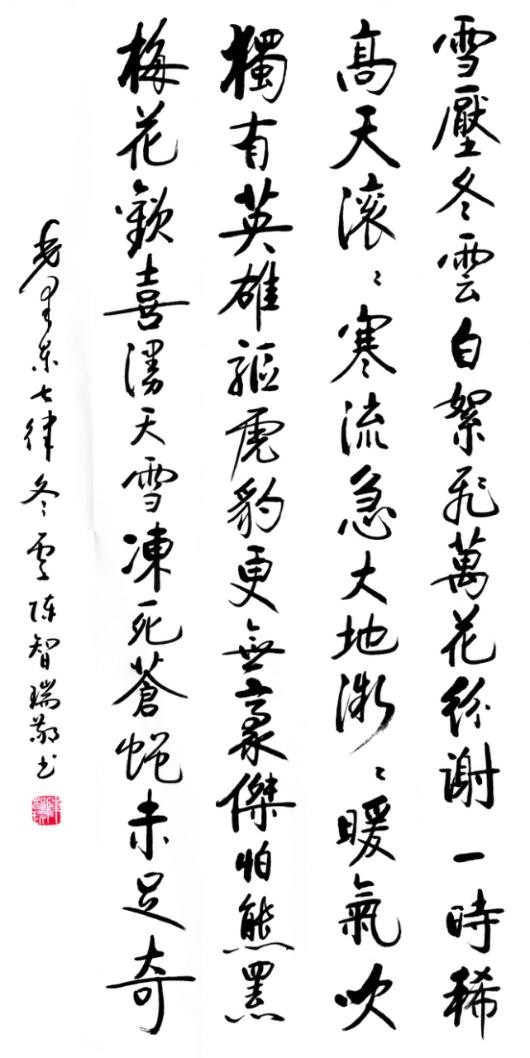 雪壓冬雲白絮飛萬花紛謝一時稀
高天滚〻寒流急大地微〻暖氣吹
獨有英雄驅虎豹更無豪傑怕熊罴
梅花歡喜漫天雪凍死蒼蝇未足奇
毛泽东七律冬雲陈智瑞敬书